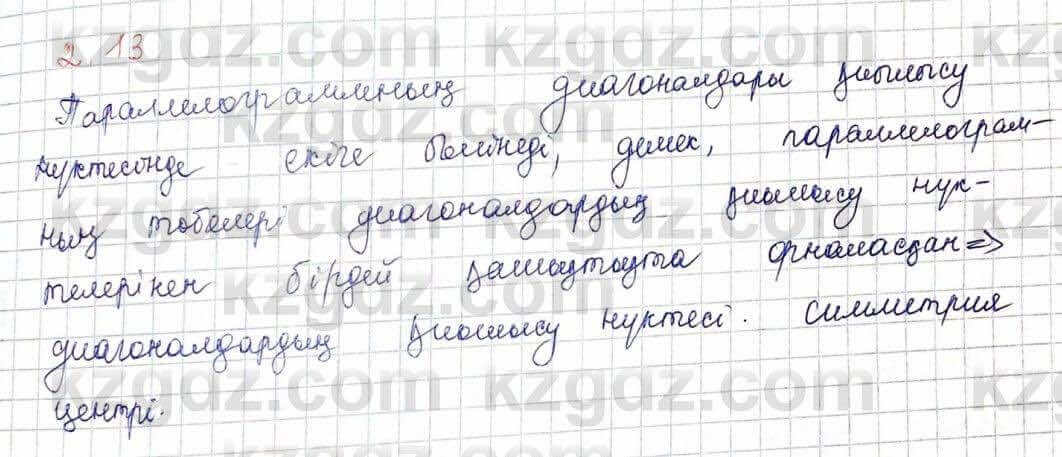 2.13
Параллелограммның диагоналдары қиылысу
нүктесінде екіге бөлінеді, демек, параллелограм-
ның төбелері диагоналдардың қиылысу нүк-
телерінен бірдей қашықтықта орналасқан =>
диагоналдардың қиылысу нүктесі. симметрия
центрі.